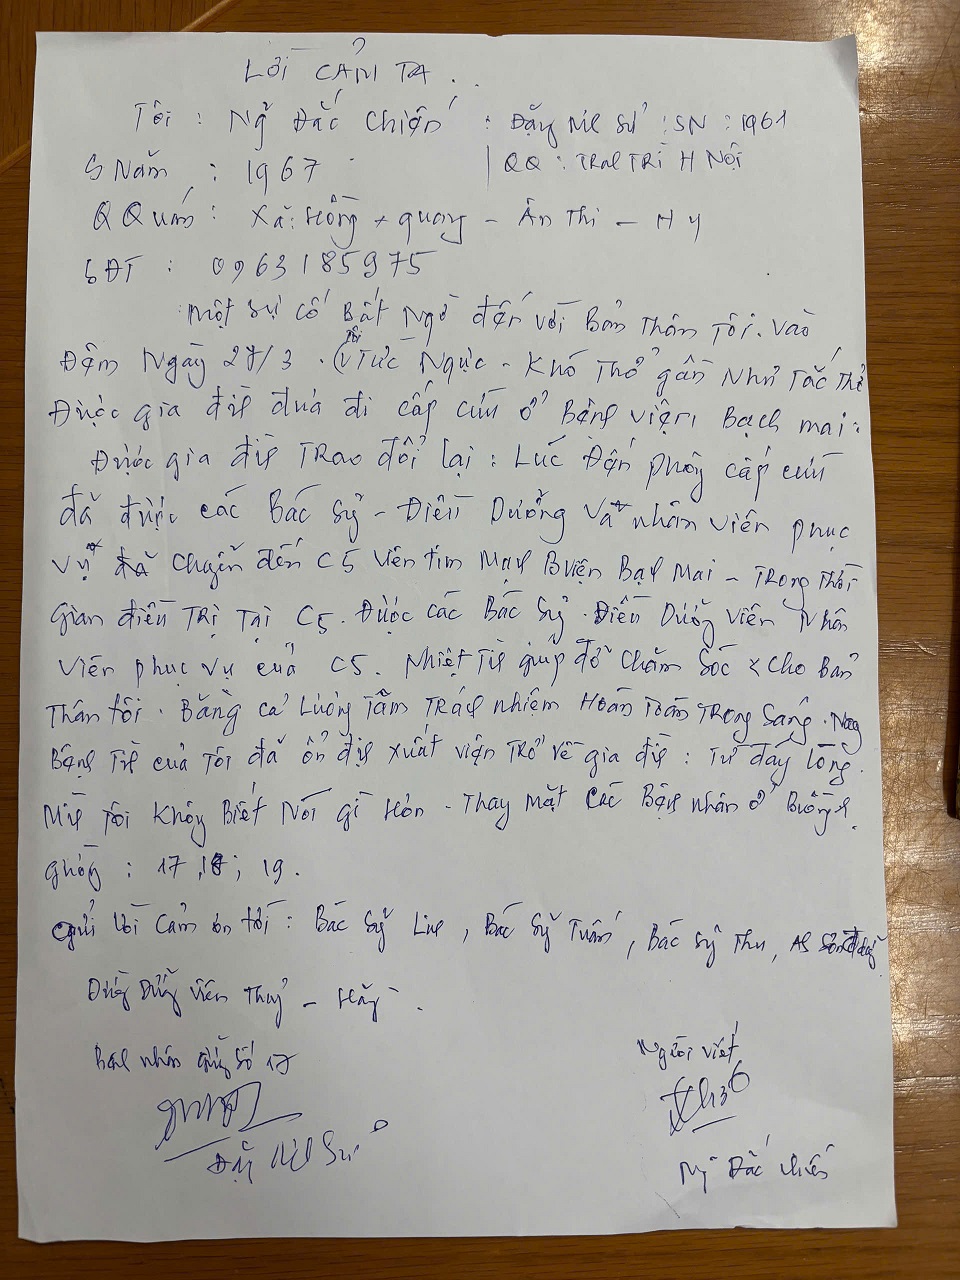 LỜI CẢM TẠ.
Tôi: Ng Đắc Chiến : Đặng : SN: 1961
S Năm : 1967 | QQ: TRI H Nội
Q Quán: Xã: Hồng + quang - Ân Thi - H Y
SĐT : 0963185975
Một sự cố Bất Ngờ đến với Bản Thân Tôi. Vào
Đêm Ngày 27/3. Tôi Tức Ngực - Khó Thở gần Như Tắc Thở
Được gia đình đưa đi cấp cứu ở Bệnh viện Bạch mai.
Được gia đình TRao đổi lại: Lúc Đến phòng cấp cứu
đã được các Bác sỹ - Điều Dưỡng Và nhân viên phục
vụ đã chuyển đến C5 Viên tim Mạch BViện Bạch Mai - TRong Thời
Gian điều TRị Tại C5. Được các Bác sỹ. Điều Dưỡng Viên Nhân
Viên phục vụ của C5. Nhiệt Tình giúp đỡ chăm sóc cho Bản
Thân tôi. Bằng cả Lương Tâm TRách nhiệm Hoàn Toàn TRong sáng. Nay
Bệnh Tình của Tôi đã ổn định xuất viện TRở về gia đình: Từ đáy lòng
Mình Tôi Không Biết Nói gì Hơn - Thay Mặt các Bệnh nhân ở Buồng
: 17, 18; 19.
gửi Lời cảm ơn tới: Bác sỹ Linh, Bác sỹ Tuấn, Bác sỹ Thu,
Viên Thuỷ - Hằng.
Bệnh nhân số 17 Người viết
Đặng Ng Đắc Chiến